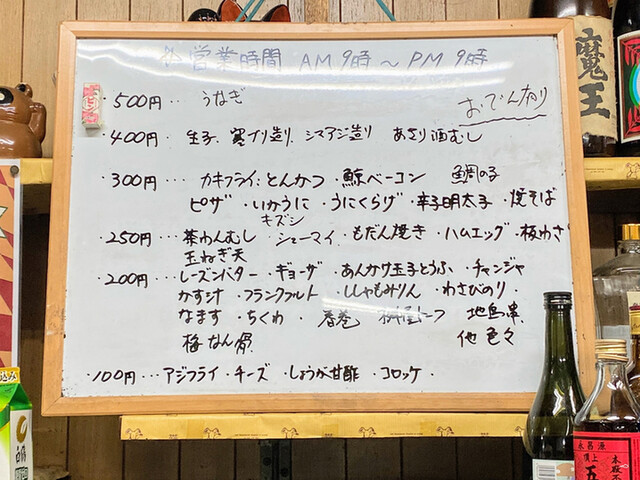 営業時間 AM 9時 ~ PM 9時
500円 … うなぎ
おでん有り
400円 … 生子、寒ブリ造り、シマアジ造り あさり酒むし
300円 … カキフライ・とんかつ ・鯨ベーコン 鯛の子
ピザ ・いかうに ・うにくらげ ・辛子明太子 ・焼そば
キズシ
250円 … 茶わんむし ・シューマイ ・もだん焼き ・ハムエッグ ・板わさ
玉ねぎ天
200円 … レーズンバター ・ギョーザ ・あんかけ玉子とうふ ・チャンジャ
かす汁 ・フランクフルト ・ししゃもみりん ・わさびのり
なます ・ちくわ ・春巻 地鳥串
梅なん骨 他 色々
・100円 … アジフライ ・チーズ ・しょうが甘酢 ・コロッケ ・
魔王